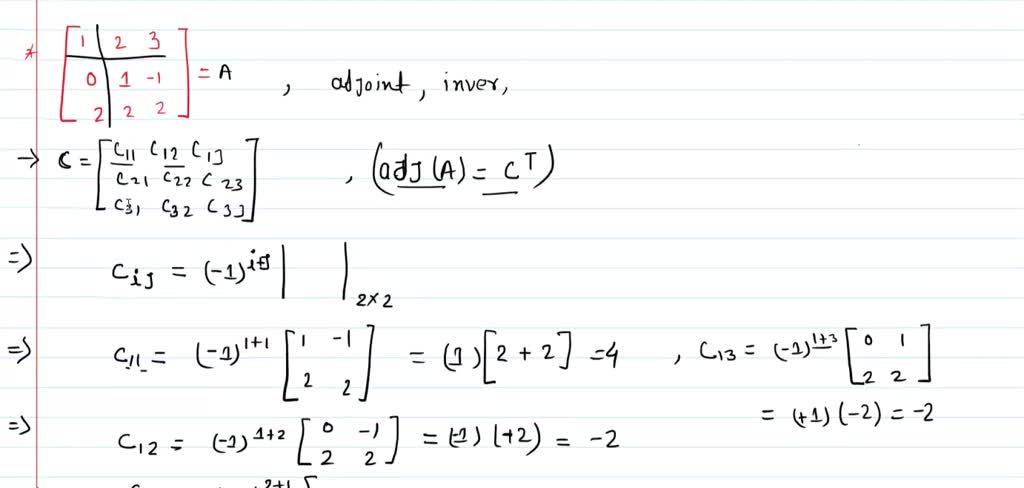 * [1 2 3
0 1 -1
2 2 2] = A , adjoint, inver,
→ C = [C11 C12 C13
C21 C22 C23
C31 C32 C33] , (adj(A) = C^T)
⇒ Cij = (-1)^i+j | |2×2
⇒ C11 = (-1)^1+1 [1 -1
2 2] = (1)[2+2] = 4 , C13 = (-1)^1+3 [0 1
2 2]
= (+1)(-2) = -2
⇒ C12 = (-1)^1+2 [0 -1
2 2] = (-1)(+2) = -2
2+1 [